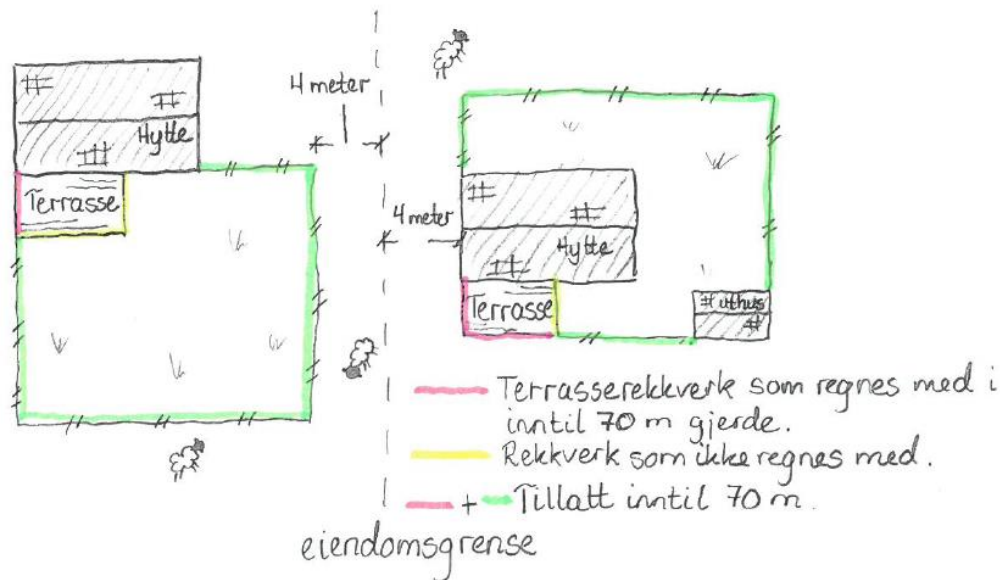 4 meter
Hytte
Terrasse
4 meter
Hytte
Terrasse
uthus
Terrasserekkverk som regnes med i
inntil 70 m gjerde.
Rekkverk som ikke regnes med.
+ Tillatt inntil 70 m.
eiendomsgrense